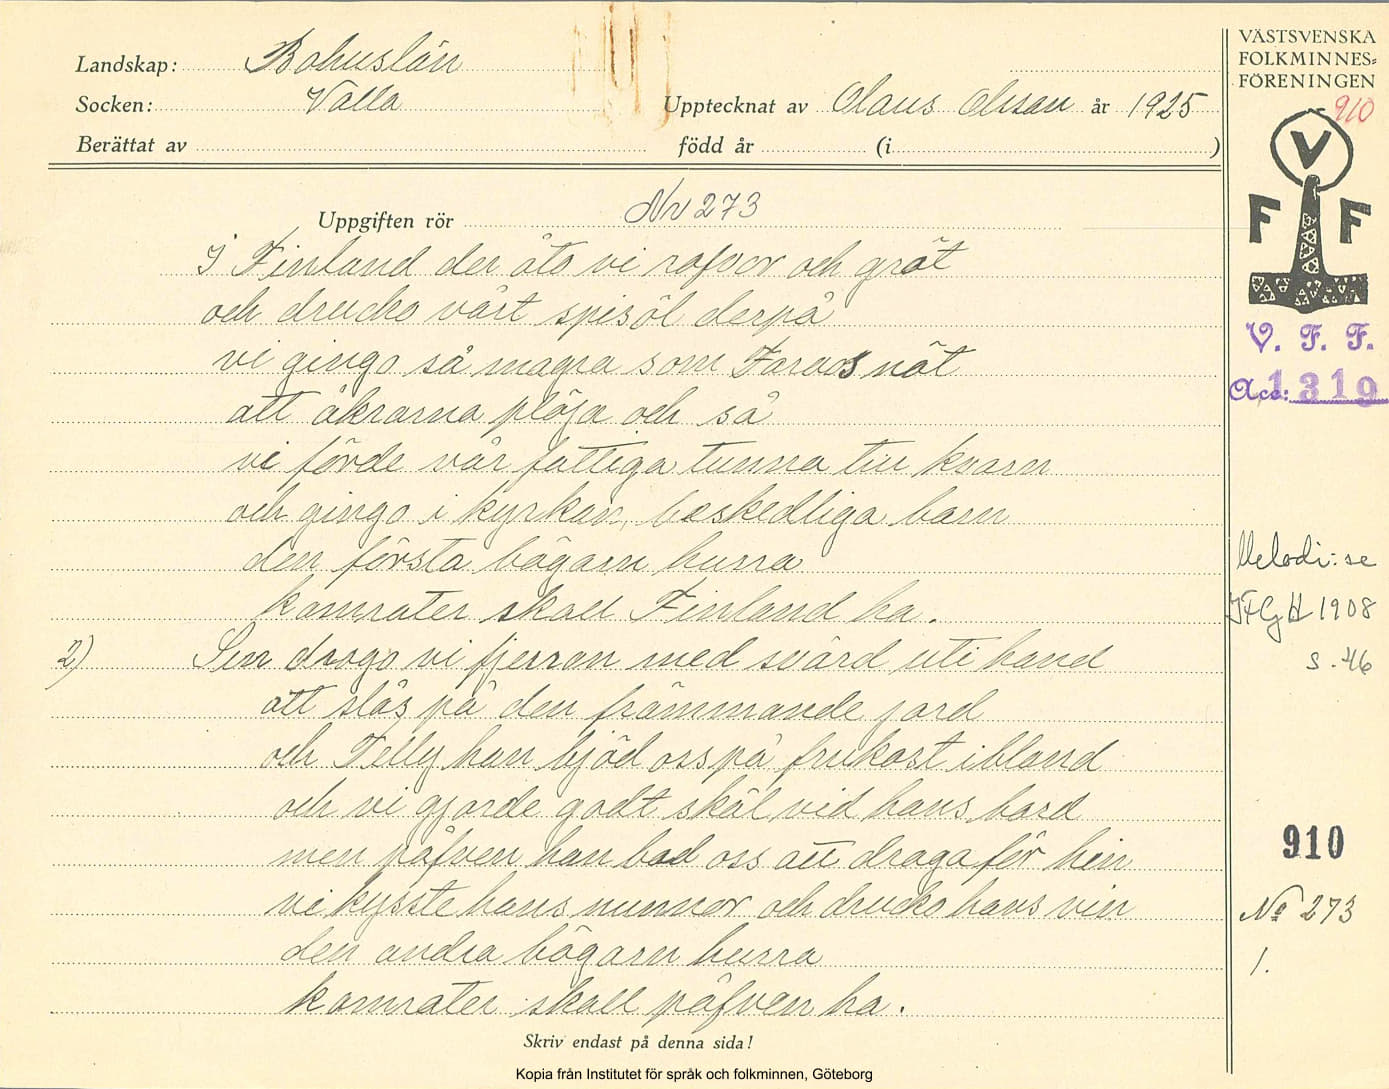 Landskap: Bohuslän
Socken: Valla
Upptecknat av Olaus Olsson år 1925
Berättat av
född år (i )
VÄSTSVENSKA
FOLKMINNES=
FÖRENINGEN
910
V
F F
V. F. F.
Acc: 1319
Uppgiften rör Nr 273
I Finland der åto vi rofvor och gröt
och drucko vårt spisöl derpå
vi gingo så magra som Faraos nöt
att åkrarna plöja och så
vi förde vår fattiga tunna till kvarn
och gingo i kyrkan, beskedliga barn
den första bägarn hurra
kamrater skall Finland ha.
2) Sen drogo vi fjerran med svärd uti hand
att slås på den främmande jord
och Telly han bjöd oss på frukost ibland
och vi gjorde godt skäl vid hans bord
men påfven han bad oss att draga för hin
vi kysste hans nunnor och drucko hans vin
den andra bägarn hurra
kamrater skall påfven ha.
Melodi: se
1908
s. 46
910
No 273
1.
Skriv endast på denna sida!
Kopia från Institutet för språk och folkminnen, Göteborg